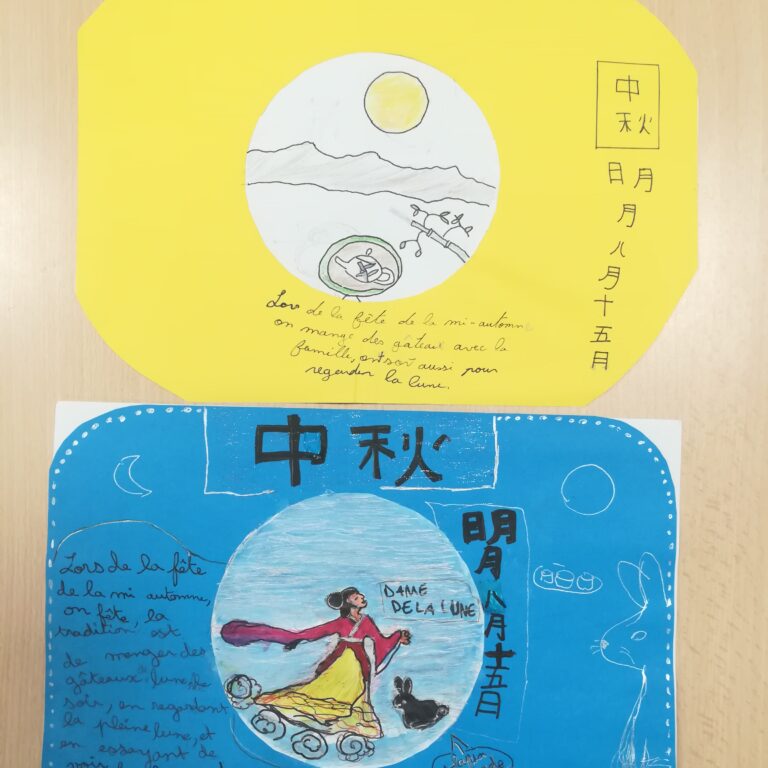 中
秋
明
月
八
月
十
五
月
Lors de la fête de la mi-automne
on mange des gâteaux avec la
famille, on sort aussi pour
regarder la lune.
中秋
明
月
八
月
十
五
月
Lors de la fête
de la mi automne,
on fête, la
tradition est
de manger des
gâteaux lune, le
soir, en regardant
la pleine lune, et
en essayant de
DAME
DE LA LUNE
lapin